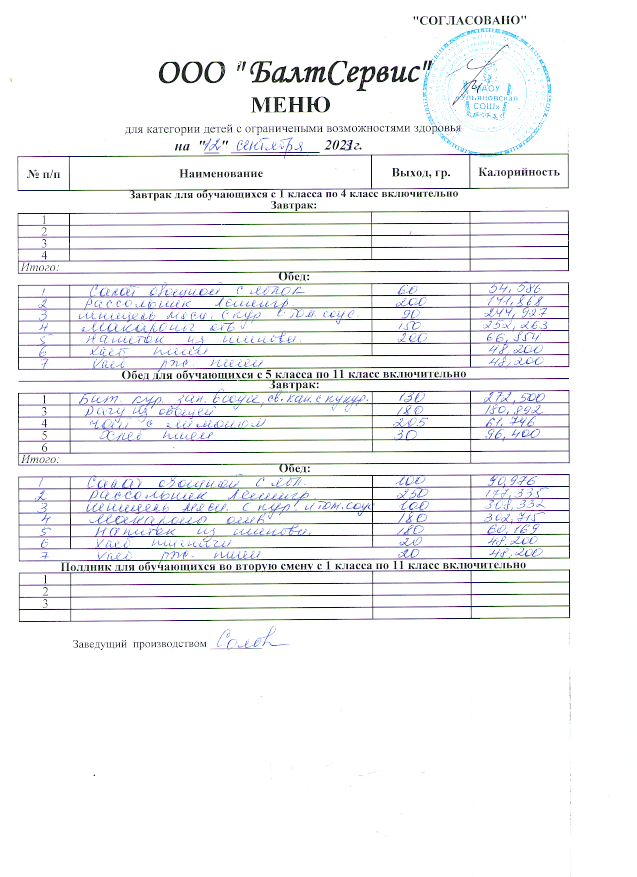 "СОГЛАСОВАНО"
ООО "БалтСервис"
МАОУ
«Ульяновская
СОШ»
МЕНЮ
для категории детей с ограничеными возможностями здоровья
на "12" сентября 2023г.
№ п/п Наименование Выход, гр. Калорийность
Завтрак для обучающихся с 1 класса по 4 класс включительно
Завтрак:
1
2
3
4
Итого:
Обед:
1 Салат овощной с яблок 60 54,586
2 Рассольник Ленингр 200 141,868
3 шницель мясн. с кур в том. соус. 90 244,927
4 Макароны отв 150 252,263
5 Напиток из шиповн. 200 66,854
6 Хлеб пшен 48,200
7 Хлеб рж. пшен 48,200
Обед для обучающихся с 5 класса по 11 класс включительно
Завтрак:
1 Бит. кур. зап. в соусе, св. кап. с кукур. 130 272,500
3 Рагу из овощей 180 180,892
4 Чай с лимоном 205 61,746
5 Хлеб пшен 30 96,400
6
Итого:
Обед:
1 Салат овощной с ябл. 100 90,976
2 Рассольник Ленингр. 250 177,335
3 шницель мясн. с кур. и том. соус 100 308,332
4 Макароны отв 180 302,715
5 Напиток из шиповн. 180 60,169
6 Хлеб 20 48,200
7 Хлеб рж. пшен 20 48,200
Полдник для обучающихся во вторую смену с 1 класса по 11 класс включительно
1
2
3
Заведущий производством